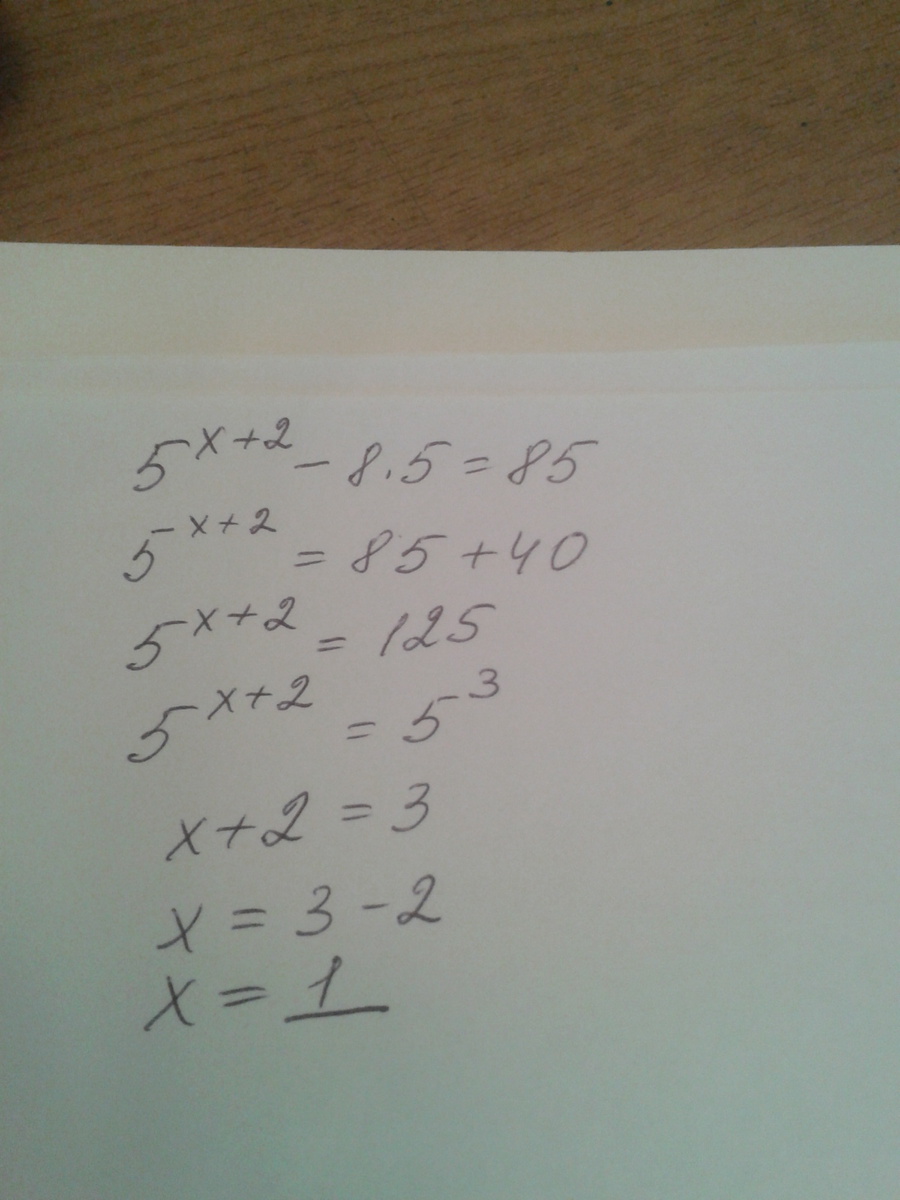 5^{x+2} - 8.5 = 85
5^{x+2} = 85 + 40
5^{x+2} = 125
5^{x+2} = 5^3
x+2 = 3
x = 3 - 2
x = 1